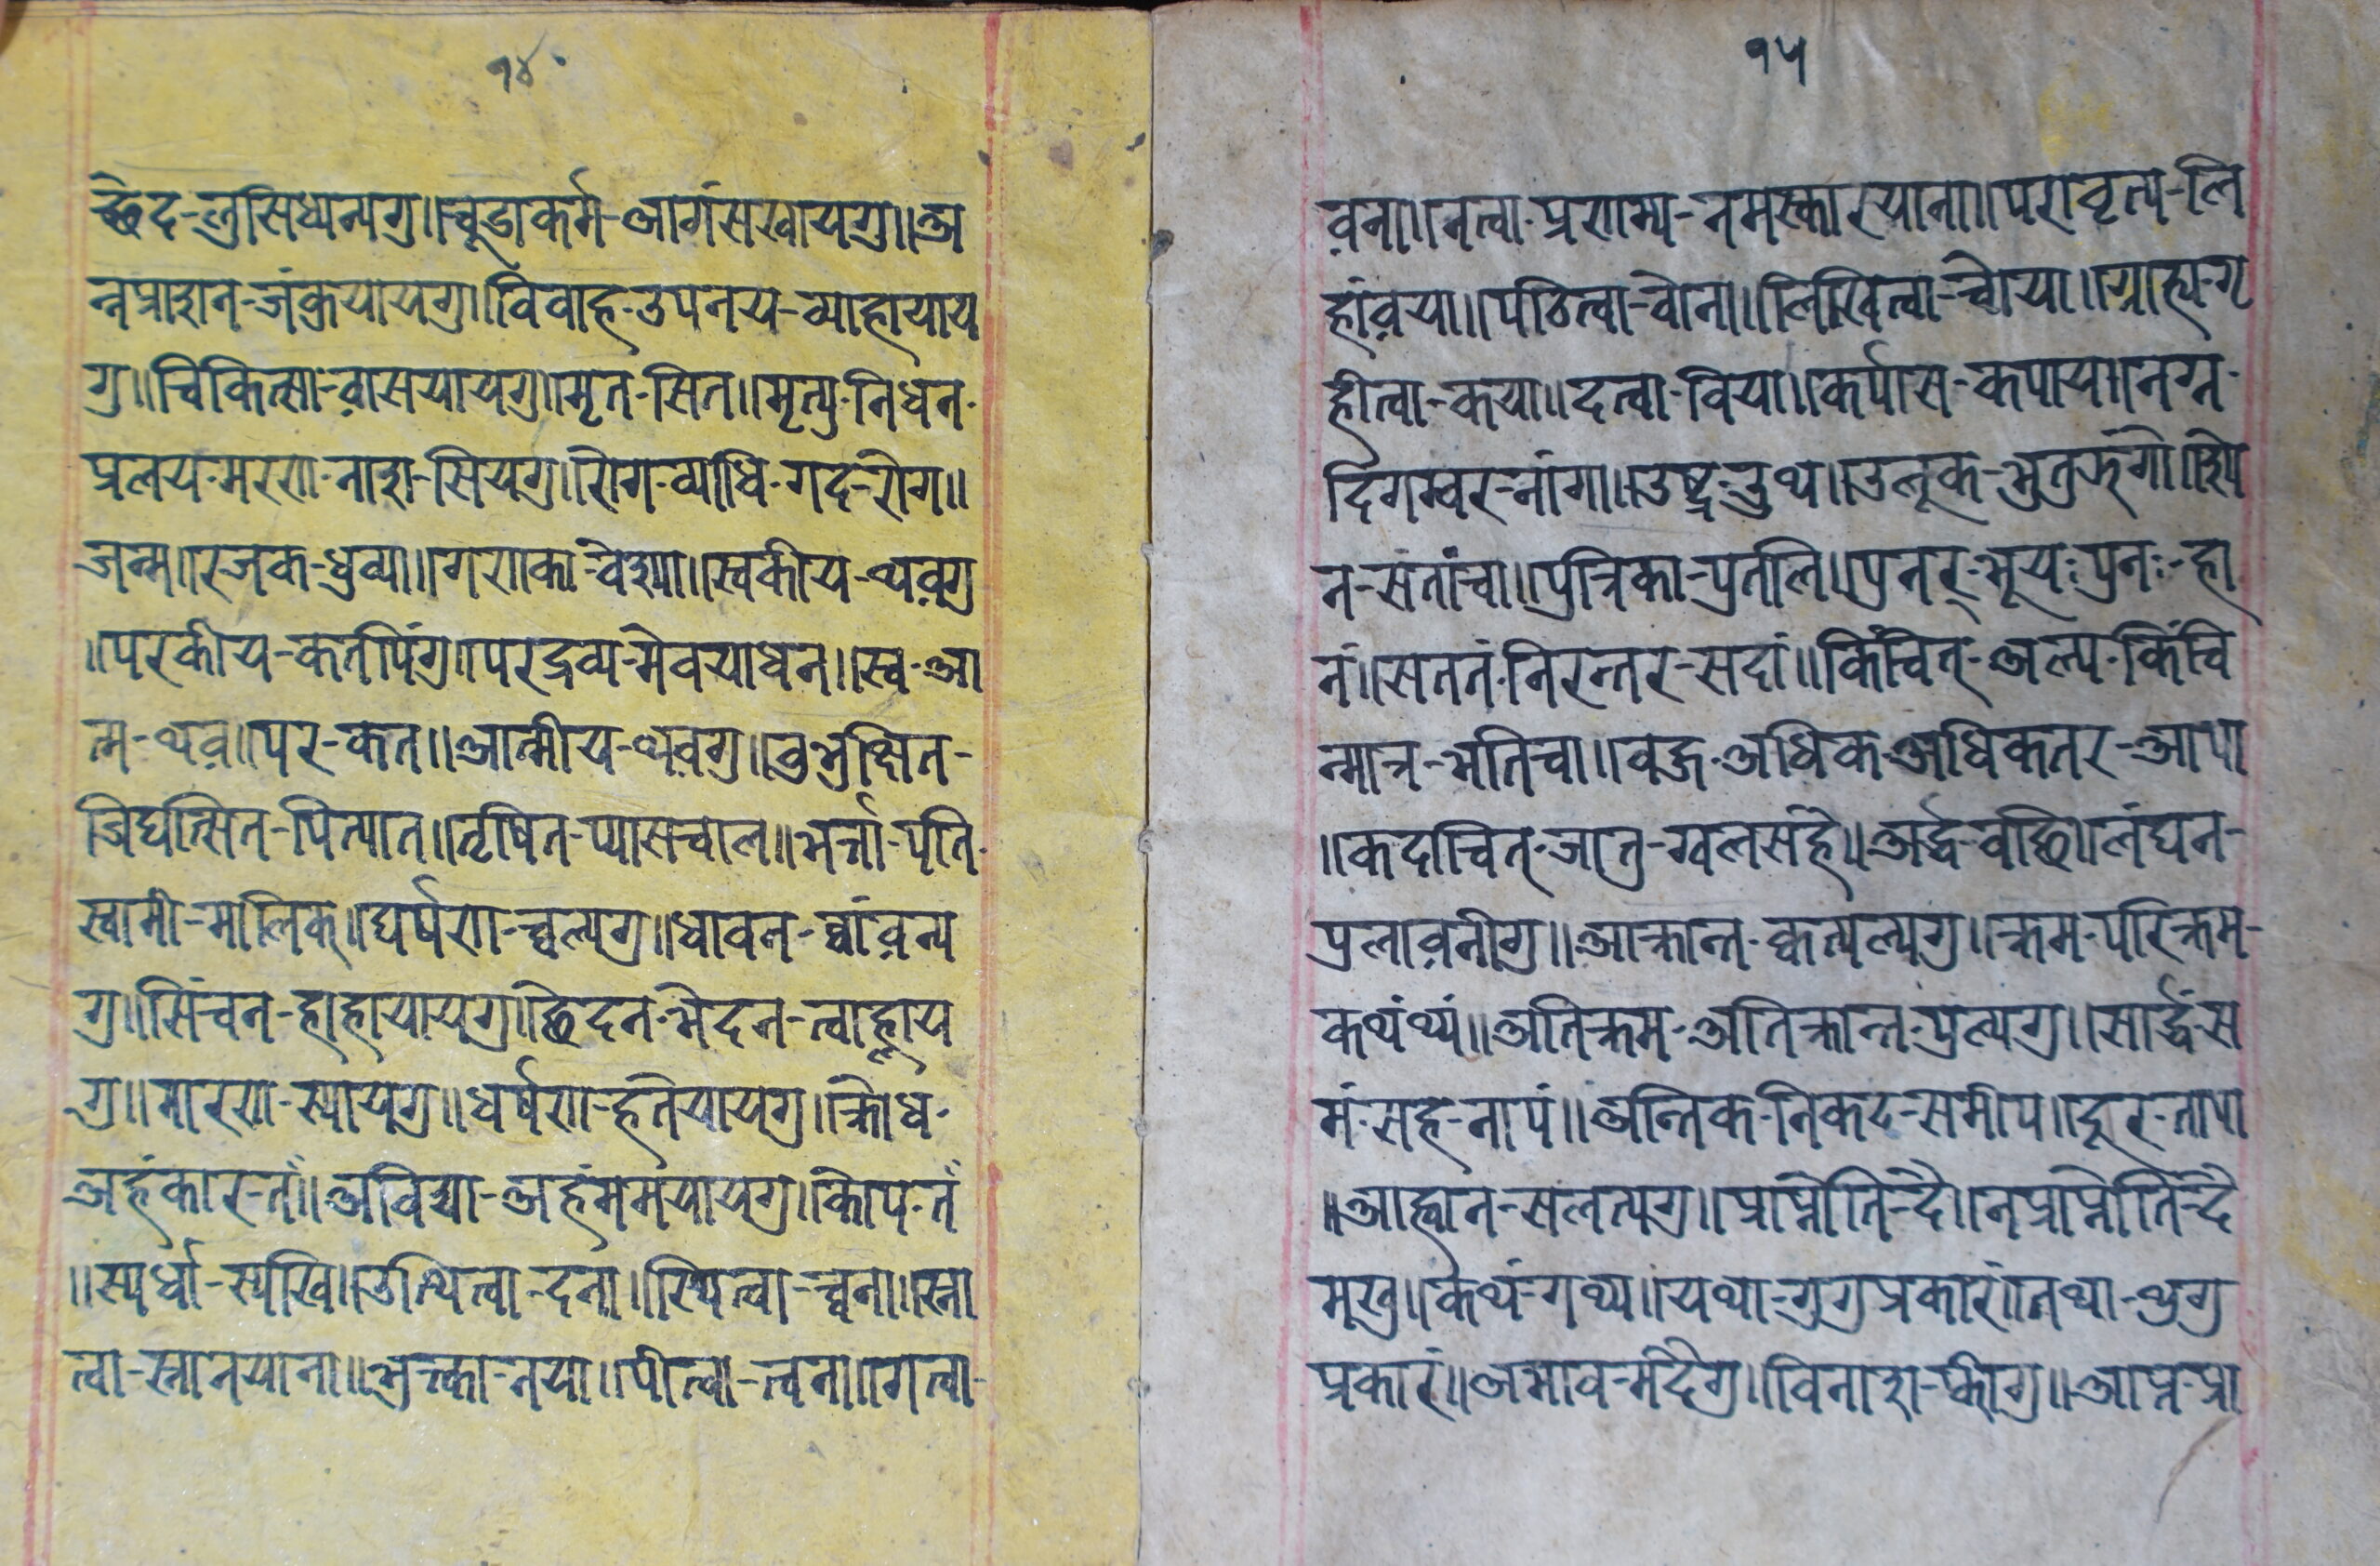 १४
च्छेद-लुसिध्यन्यगु॥चूडाकर्म-आगंसखायगु॥अ
न्नप्राशन-जंक्वयायगु॥विवाह-उपनय-ब्याहायाय
गु॥चिकित्सा-वासयायगु॥मृत-सित॥मृत्यु-निधन-
प्रलय-मरण-नाश-सियगु॥रोग-व्याधि-गद-रोग॥
जन्म॥रजक-धुव्या॥गणका-वेश्या॥स्वकीय-थवगु
॥परकीय-कतपिंगु॥परद्रव्य-मेवयाधन॥स्व-आ
त्म-थव॥पर-कत॥आत्मीय-थवगु॥वुभुक्षित-
जिघत्सित-पित्यात॥तृषित-प्यासचाल॥भर्त्ता-पति-
स्वामी-मालिक्॥घर्षण-च्वल्यगु॥धावन-ब्वांवन्य
गु॥सिंचन-हाहायायगु॥छेदन-भेदन-त्वाह्लाय
गु॥मारण-स्यायगु॥धर्षण-हतेयायगु॥क्रोध-
अहंकार-तँ॥अविद्या-अहंममयायगु॥कोप-तँ
॥स्पर्धा-स्यखि॥उत्थित्वा-दना॥स्थित्वा-च्वना॥स्ना
त्वा-स्नानयाना॥भुक्त्वा-नया॥पीत्वा-त्वना॥गत्वा-
१५
वना॥नत्वा-प्रणम्य-नमस्कारयाना॥परावृत्य-लि
हांवया॥पठित्वा-वोना॥लिखित्वा-च्वोया॥ग्राह्य-गृ
हीत्वा-कया॥दत्वा-विया॥कर्पास-कपाय॥नग्न-
दिगम्वर-नांगा॥उष्ट्र-उथ॥उलूक-भुतुझंगो॥श्ये
न-संतांचा॥पुत्रिका-पुतलि॥पुनर्-भूयः पुनः-हा
नं॥सततं-निरन्तर-सदां॥किंचित्-अल्प-किंचि
न्मात्र-भतिचा॥वहु-अधिक-अधिकतर-आपा
॥कदाचित्-जातु-ग्वलसंहे॥अर्द्ध-वछि॥लंघन-
पुलावनीगु॥आक्रान्त-क्वत्यल्यगु॥क्रम-परिक्रम-
कथंथ्यं॥अतिक्रम-अतिक्रान्त-पुल्यगु॥सार्द्धं-स
मं-सह-नापं॥अन्तिक-निकट-समीप॥दूर-तापा
॥आह्वान-सलत्यगु॥प्राप्नोति-दै॥नप्राप्नोति-दै
मखु॥कथं-गथ्य॥यथा-गुगुप्रकारं॥तथा-थुगु
प्रकारं॥अभाव-मदैगु॥विनाश-फीगु॥आप्न-प्रा